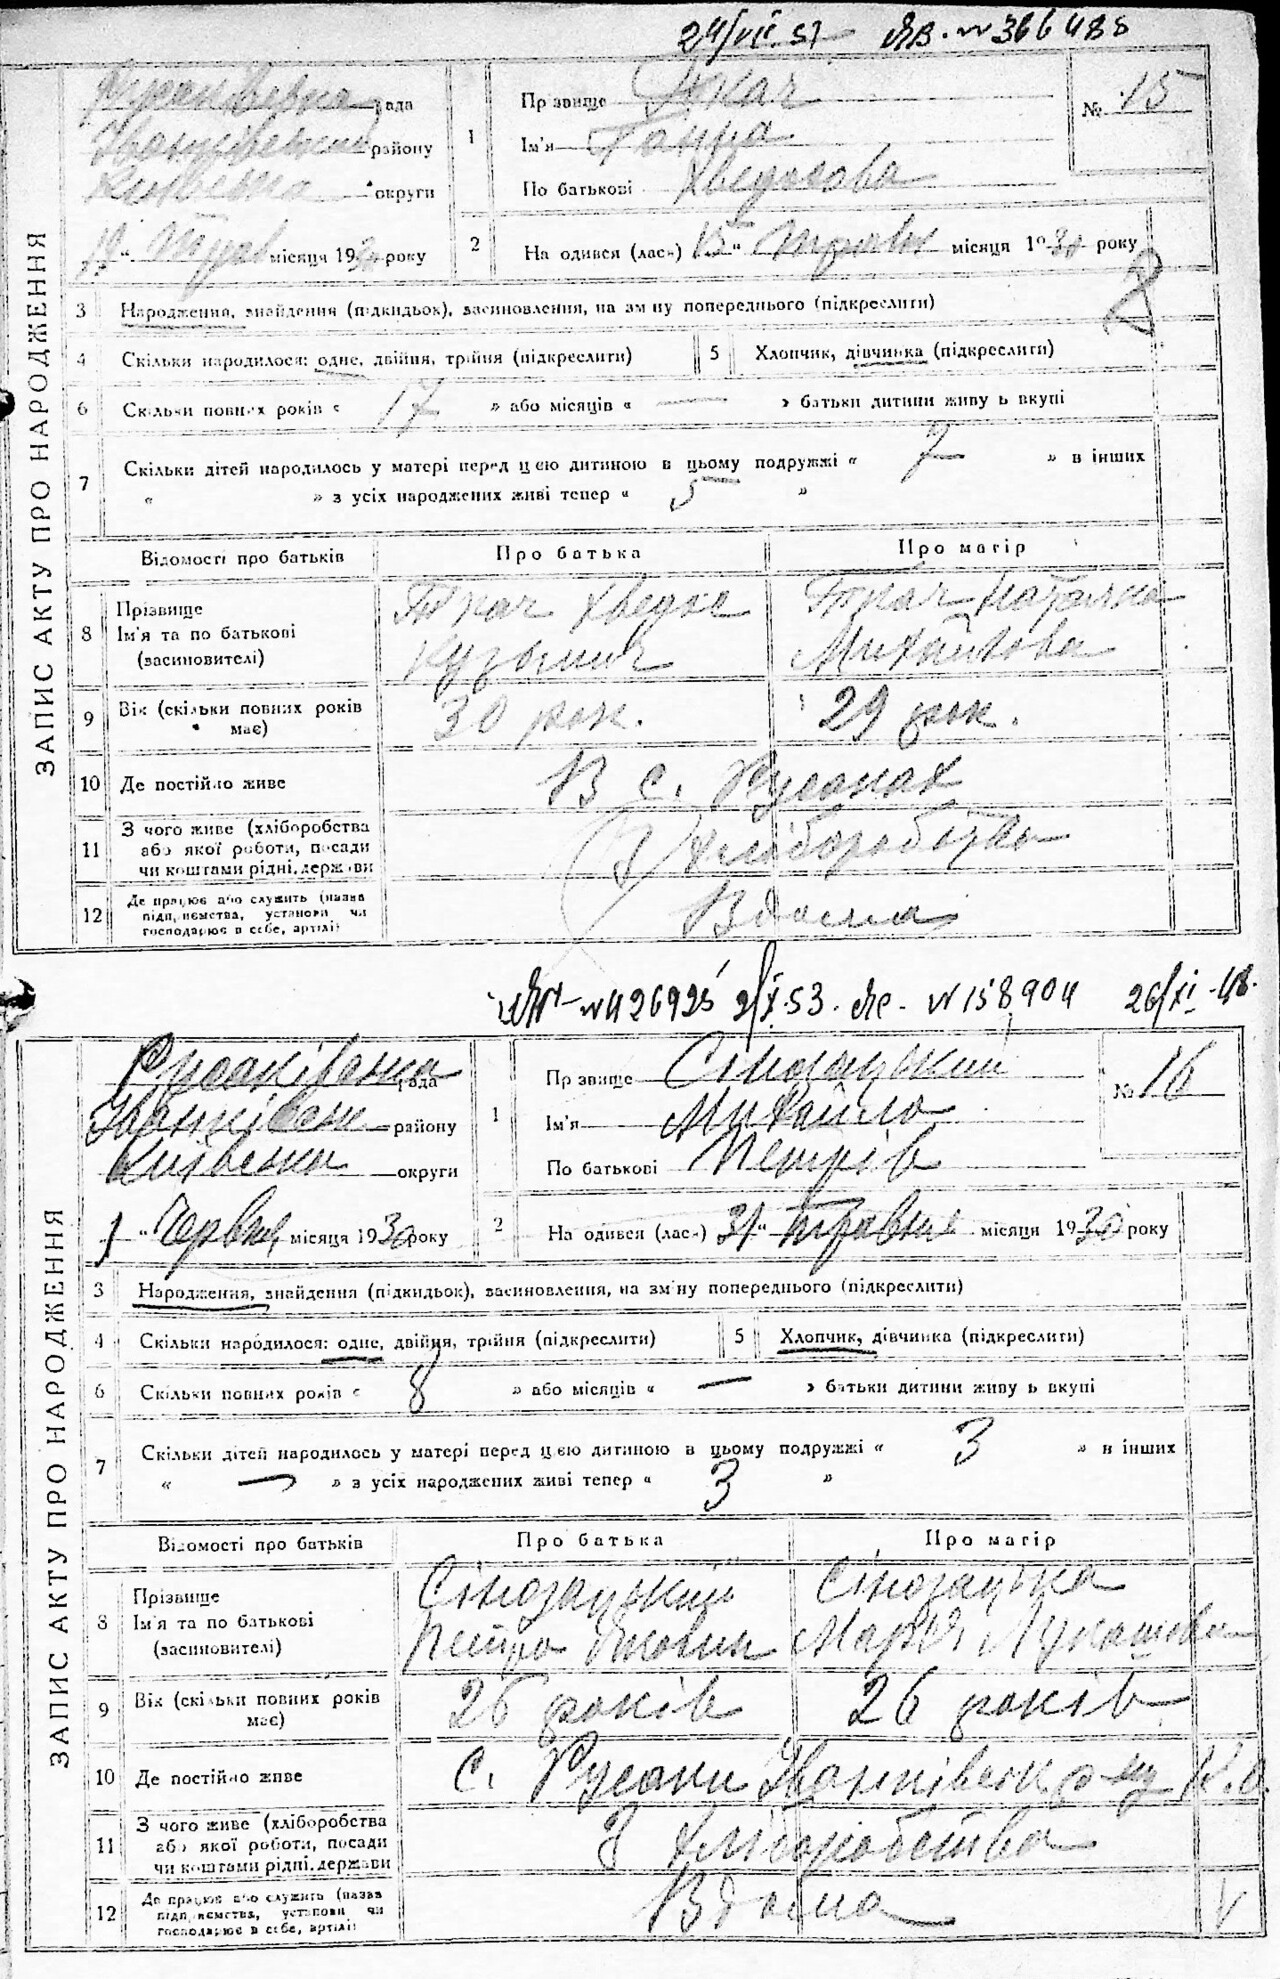 24/VII.51 ЯВ. № 366488
ЗАПИС АКТУ ПРО НАРОДЖЕННЯ
рада
району
округи
1
Прізвище Ткач
Ім'я Ганна
По батькові Хведосова
№ 15
19 " Трав місяця 1930 року
2
На одився (лась) 15 " Травня місяця 1930 року
3 Народження, знайдення (підкидьок), засиновлення, на зміну попереднього (підкреслити)
4 Скільки народилося: одне, двійня, трійня (підкреслити)
5 Хлопчик, дівчинка (підкреслити)
6 Скільки повних років « 17 » або місяців « — » батьки дитини живуть вкупі
7 Скільки дітей народилось у матері перед цією дитиною в цьому подружжі « 7 » в інших
« » з усіх народжених живі тепер « 5 »
Відомості про батьків Про батька Про матір
8 Прізвище
Ім'я та по батькові
(засиновителі)
Ткач Хведос
Кузьмич
Ткач Наталка
Михайлова
9 Вік (скільки повних років
має)
30 рок. 29 рок.
10 Де постійно живе В с. Русаках
11 З чого живе (хліборобства
або якої роботи, посади
чи коштами рідні, держави
З Хліборобства
12 Де працює або служить (назва
підприємства, установи чи
господарює в себе, артілі)
Вдома
№ 426925 2/X.53. № 158904 26/XI-48.
ЗАПИС АКТУ ПРО НАРОДЖЕННЯ
Русаківська рада
Іванківськ району
Київська округи
1
Прізвище Сінозацький
Ім'я Михайло
По батькові Петрів
№ 16
1 " Червня місяця 1930 року
2
На одився (лась) 31 " травня місяця 1930 року
3 Народження, знайдення (підкидьок), засиновлення, на зміну попереднього (підкреслити)
4 Скільки народилося: одне, двійня, трійня (підкреслити)
5 Хлопчик, дівчинка (підкреслити)
6 Скільки повних років « 8 » або місяців « — » батьки дитини живуть вкупі
7 Скільки дітей народилось у матері перед цією дитиною в цьому подружжі « 3 » в інших
« — » з усіх народжених живі тепер « 3 »
Відомості про батьків Про батька Про матір
8 Прізвище
Ім'я та по батькові
(засиновителі)
Сінозацький
Петро
Сінозацька
Марія Лукашова
9 Вік (скільки повних років
має)
26 років 26 років
10 Де постійно живе с. Русаки Іванківськ р-ну К.О.
11 З чого живе (хліборобства
або якої роботи, посади
чи коштами рідні, держави
З хліборобства
12 Де працює або служить (назва
підприємства, установи чи
господарює в себе, артілі)
Вдома